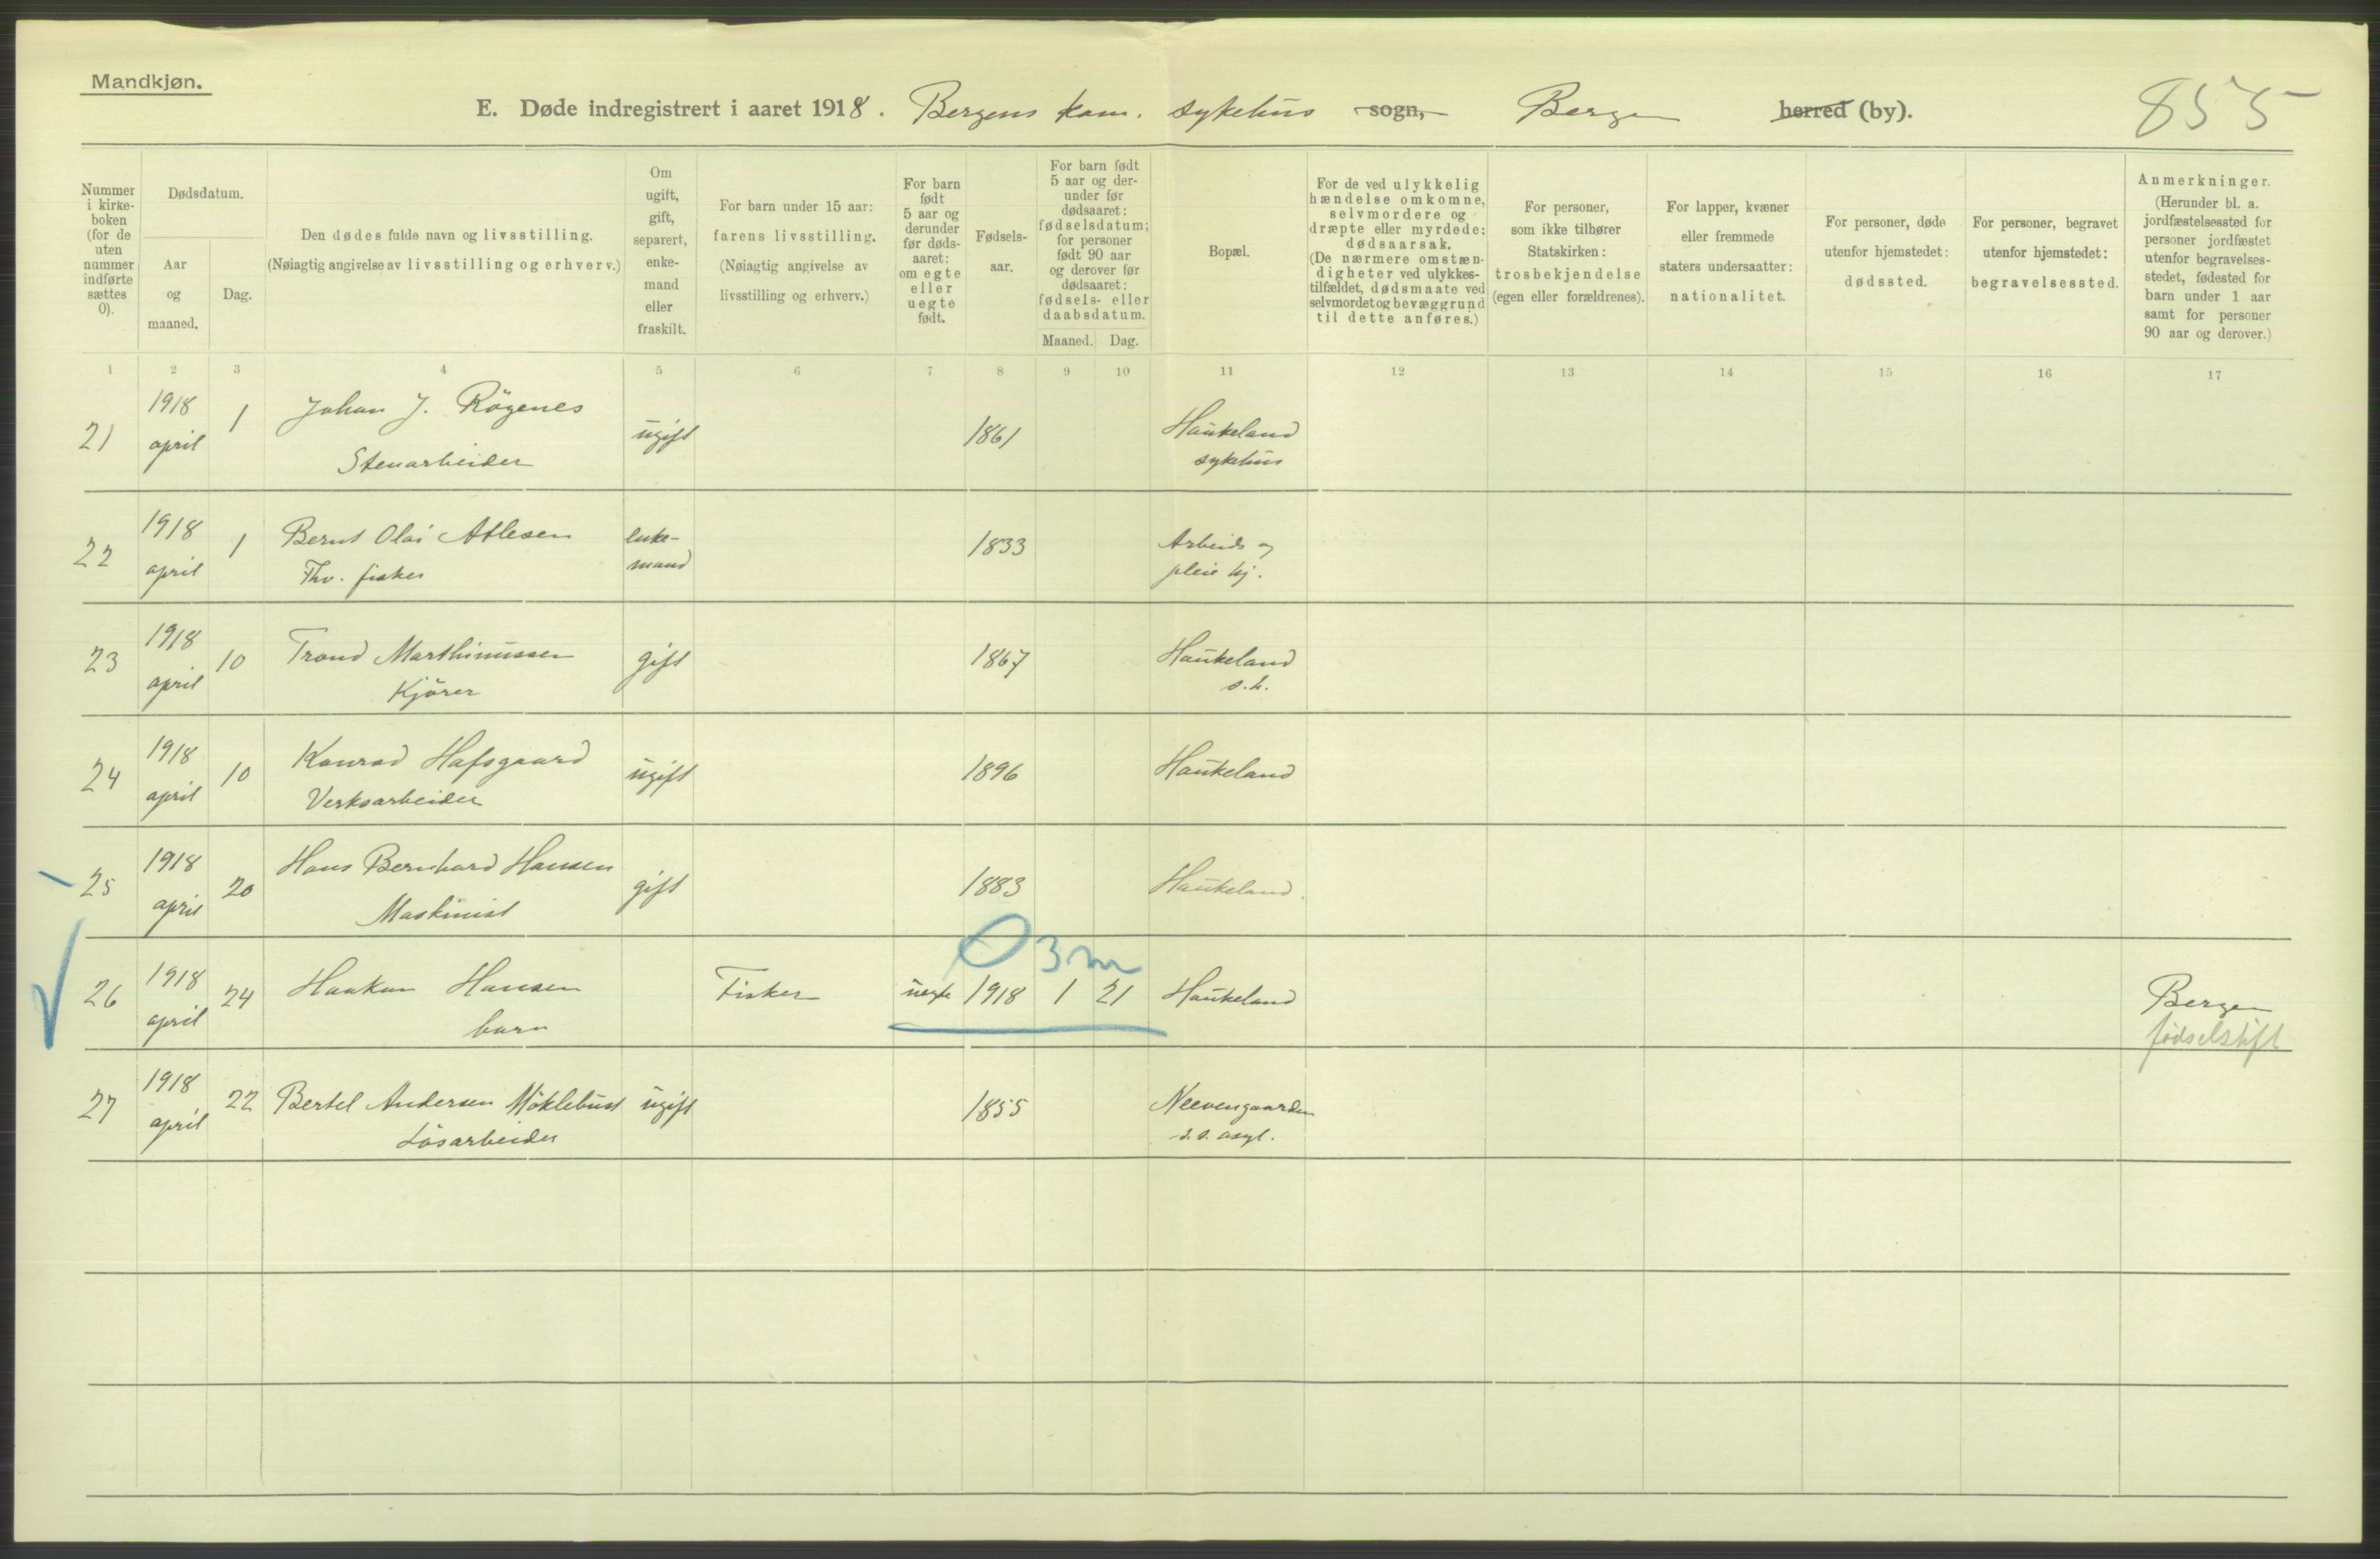 Mandkjøn.
E. Døde indregistrert i aaret 1918. Bergens kom. sykehus sogn, Bergen herred (by). 855
Nummer i kirkeboken (for de uten nummer indførte sættes 0).
Dødsdatum.
Aar og maaned.
Dag.
Den dødes fulde navn og livsstilling.
(Nøiagtig angivelse av livsstilling og erhverv.)
Om ugift, gift, separert, enkemand eller fraskilt.
For barn under 15 aar: farens livsstilling. (Nøiagtig angivelse av livsstilling og erhverv.)
For barn født 5 aar og derunder før dødsaaret: om egte eller uegte født.
Fødselsaar.
For barn født 5 aar og derunder før dødsaaret: fødselsdatum; for personer født 90 aar og derover før dødsaaret: fødsels- eller daabsdatum.
Maaned. Dag.
Bopæl.
For de ved ulykkelig hændelse omkomne, selvmordere og dræpte eller myrdede: dødsaarsak. (De nærmere omstændigheter ved ulykkestilfældet, dødsmaate ved selvmordet og bevæggrund til dette anføres.)
For personer, som ikke tilhører Statskirken: trosbekjendelse (egen eller forældrenes).
For lapper, kvæner eller fremmede staters undersaatter: nationalitet.
For personer, døde utenfor hjemstedet: dødssted.
For personer, begravet utenfor hjemstedet: begravelsessted.
Anmerkninger. (Herunder bl. a. jordfæstelsessted for personer jordfæstet utenfor begravelsesstedet, fødested for barn under 1 aar samt for personer 90 aar og derover.)
1 2 3 4 5 6 7 8 9 10 11 12 13 14 15 16 17
21 1918 april 1 Johan J. Rögenes ugift 1861 Haukeland
Stenarbeider sykehus
22 1918 april 1 Bernt Olai Atlesen enke-mand 1833 Arbeids og
Fhv. fisker pleie hj.
23 1918 april 10 Trond Marthinussen gift 1867 Haukeland
Kjörer s.h.
24 1918 april 10 Konrad Hafsgaard ugift 1896 Haukeland
Verksarbeider
25 1918 april 20 Hans Bernhard Hansen gift 1883 Haukeland.
Maskinist
0 3 m
26 1918 april 24 Haakon Hansen Fisker uegte 1918 1 21 Haukeland Bergen
barn fødselstift
27 1918 april 22 Bertel Andersen Möklebust ugift 1855 Neevengaarden
Lösarbeider s.s. asyl.